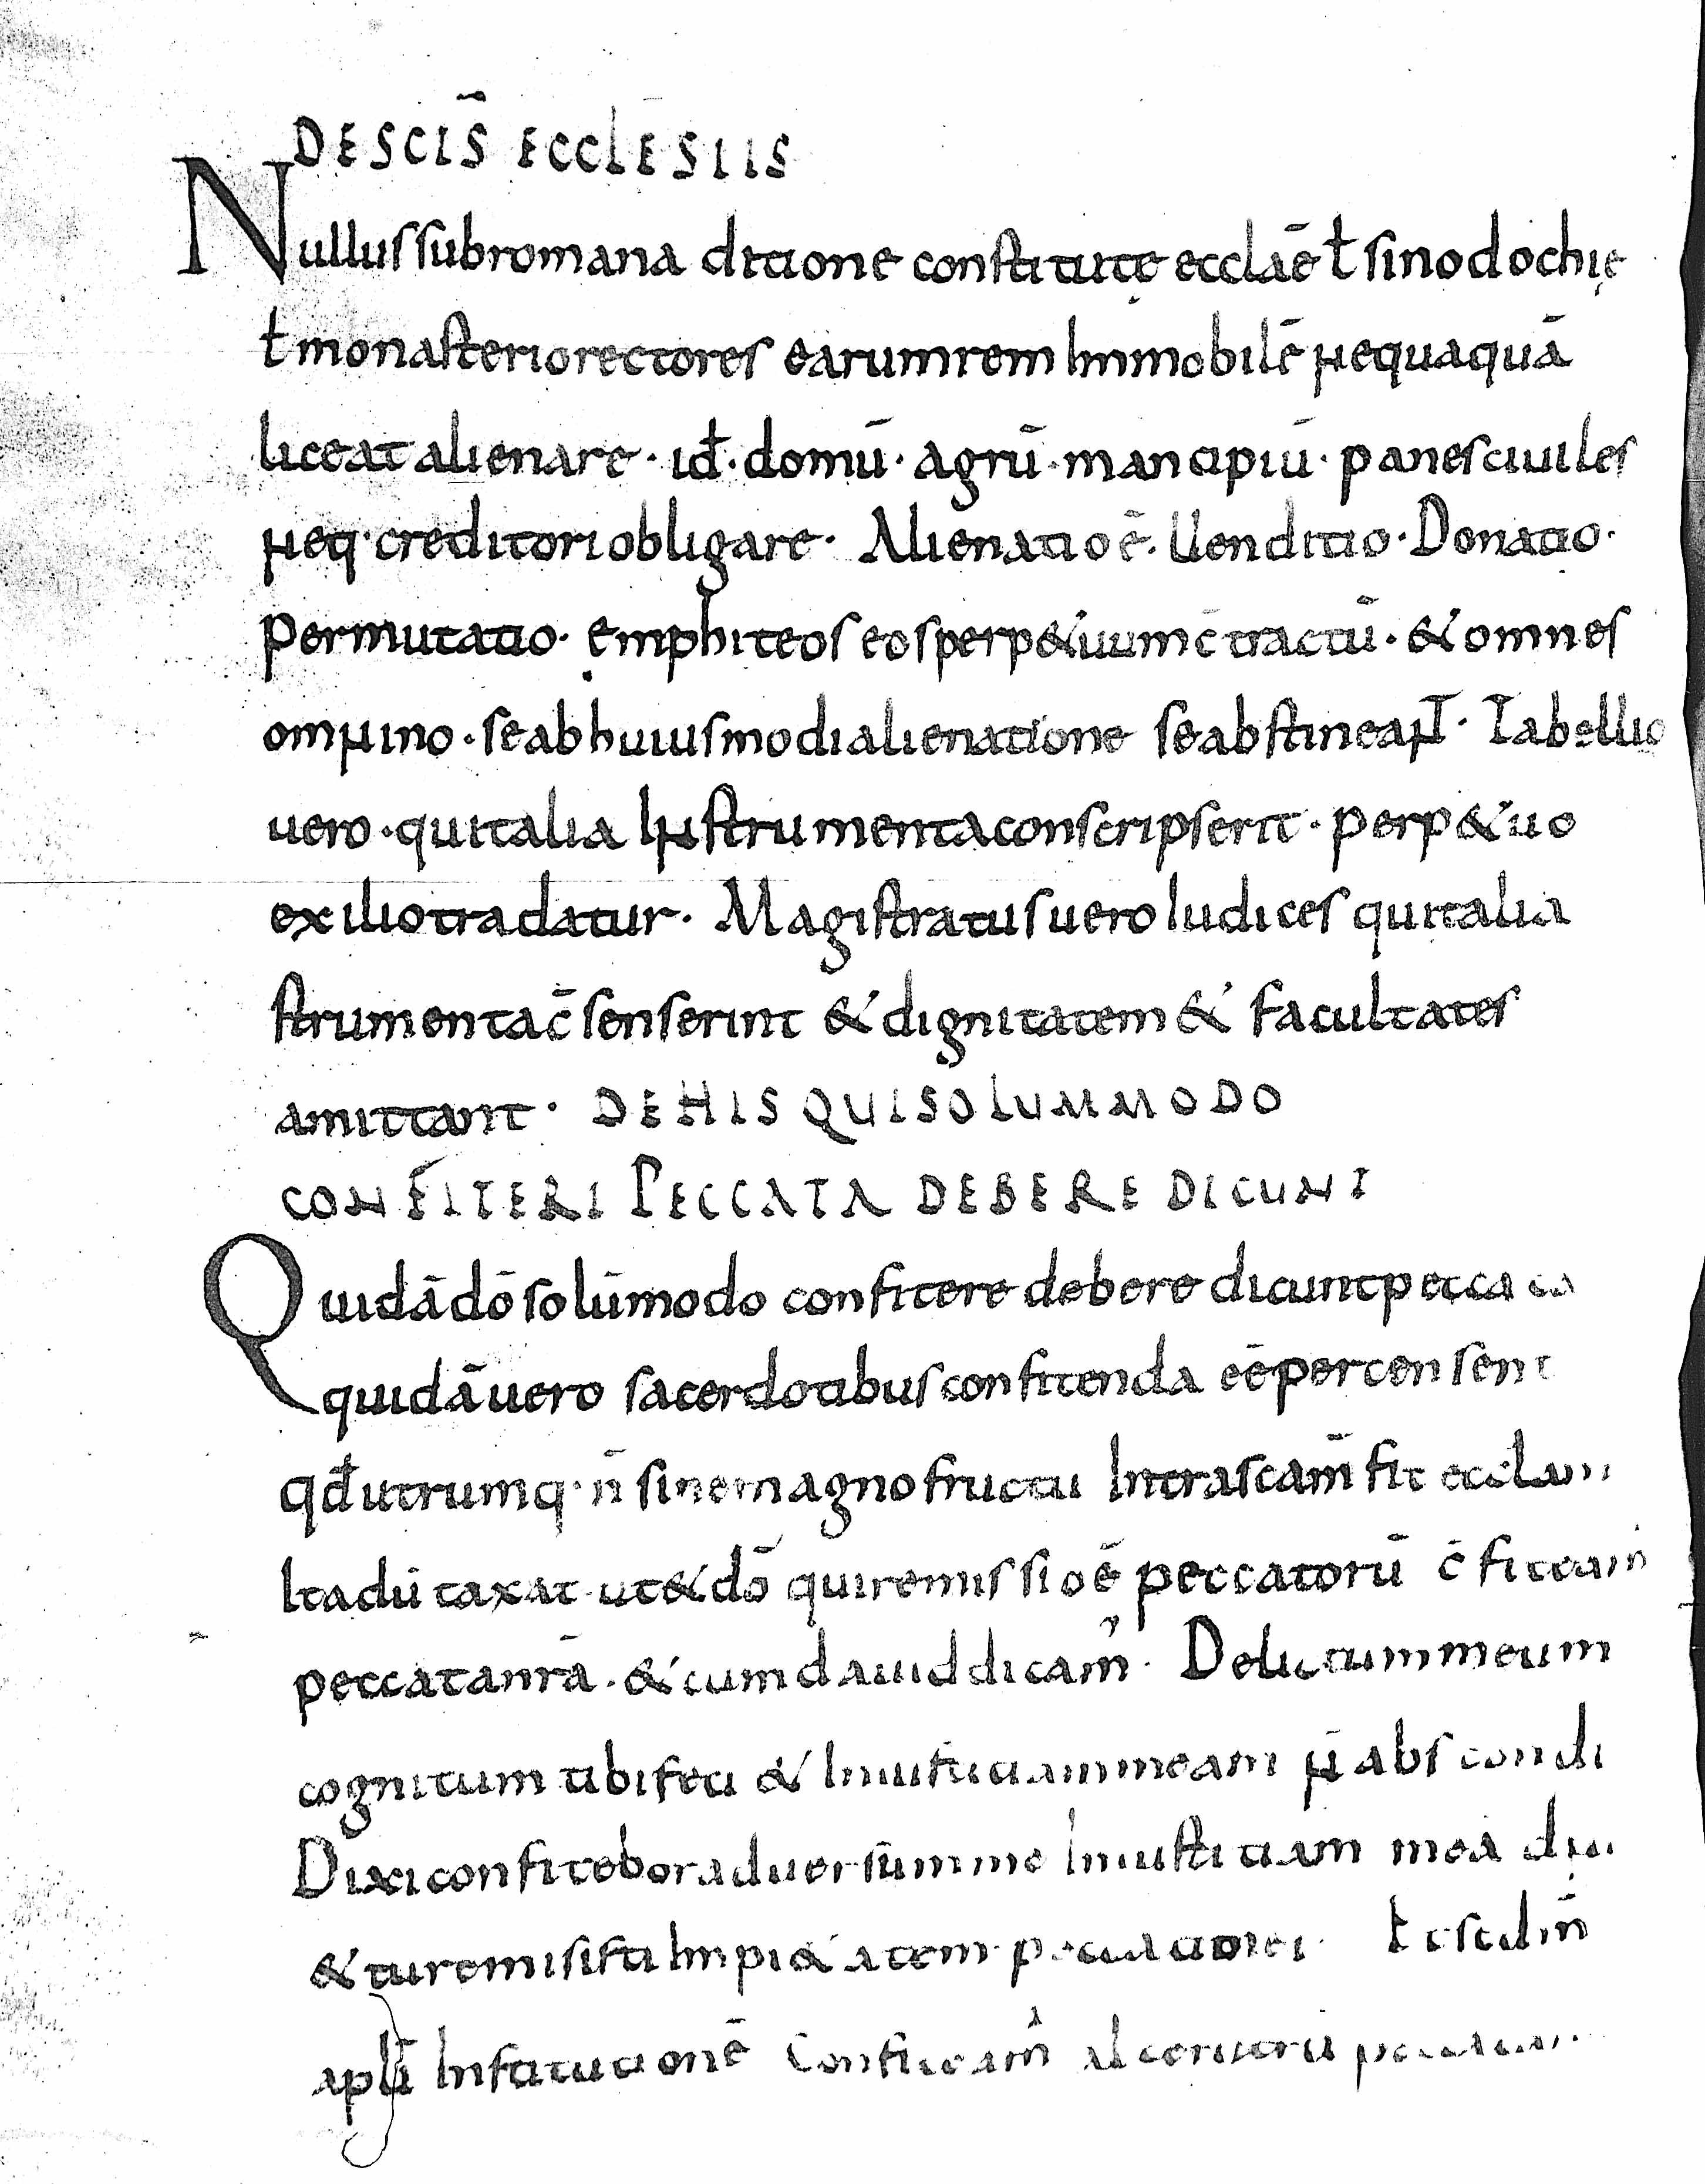 DESCIS̄ ECCLESIIS
Nullus sub romana ditione constitutę ecclāe ł sinodochię
ł monasterio rectores earum rem Inmobilē nequaquā
liceat alienare · iđ · domū · agrū · mancipiū · panes ciuiles
neq· creditori obligare · Alienatio ē · Uenditio · Donatio ·
permutatio · emphiteoseos perp&uum c̄tractū · & omnes
omnino · se ab huiusmodi alienatione se abstineant · Tabellio
uero · qui talia Instrumenta conscripserit · perp&uo
exilio tradatur · Magistratus uero Iudices qui talia
strumenta c̄senserint & dignitatem & facultates
amittant · DE HIS QUI SOLUMMODO
CONFITERI PECCATA DEBERE DICUNT
Quidā dō solūmodo confitere debere dicunt peccata
quidā uero sacerdotibus confitenda eē percensent
qđ utrumq· n̄ sine magno fructu Intra scam̄ fit
Ita dūtaxat ut & dō qui remissio ē peccatorū c̄fiteam̄
peccata nrā · & cum dauid dicam̄ · Delictum meum
cognitum tibi feci & Iniustitiam meam n̄ abscondi
Dixi confitebor aduersūm me Iniustitiam meā
& tu remisisti Inpi&atem peccati mei ·
apłi Institutionē Confiteam̄ alterutrū